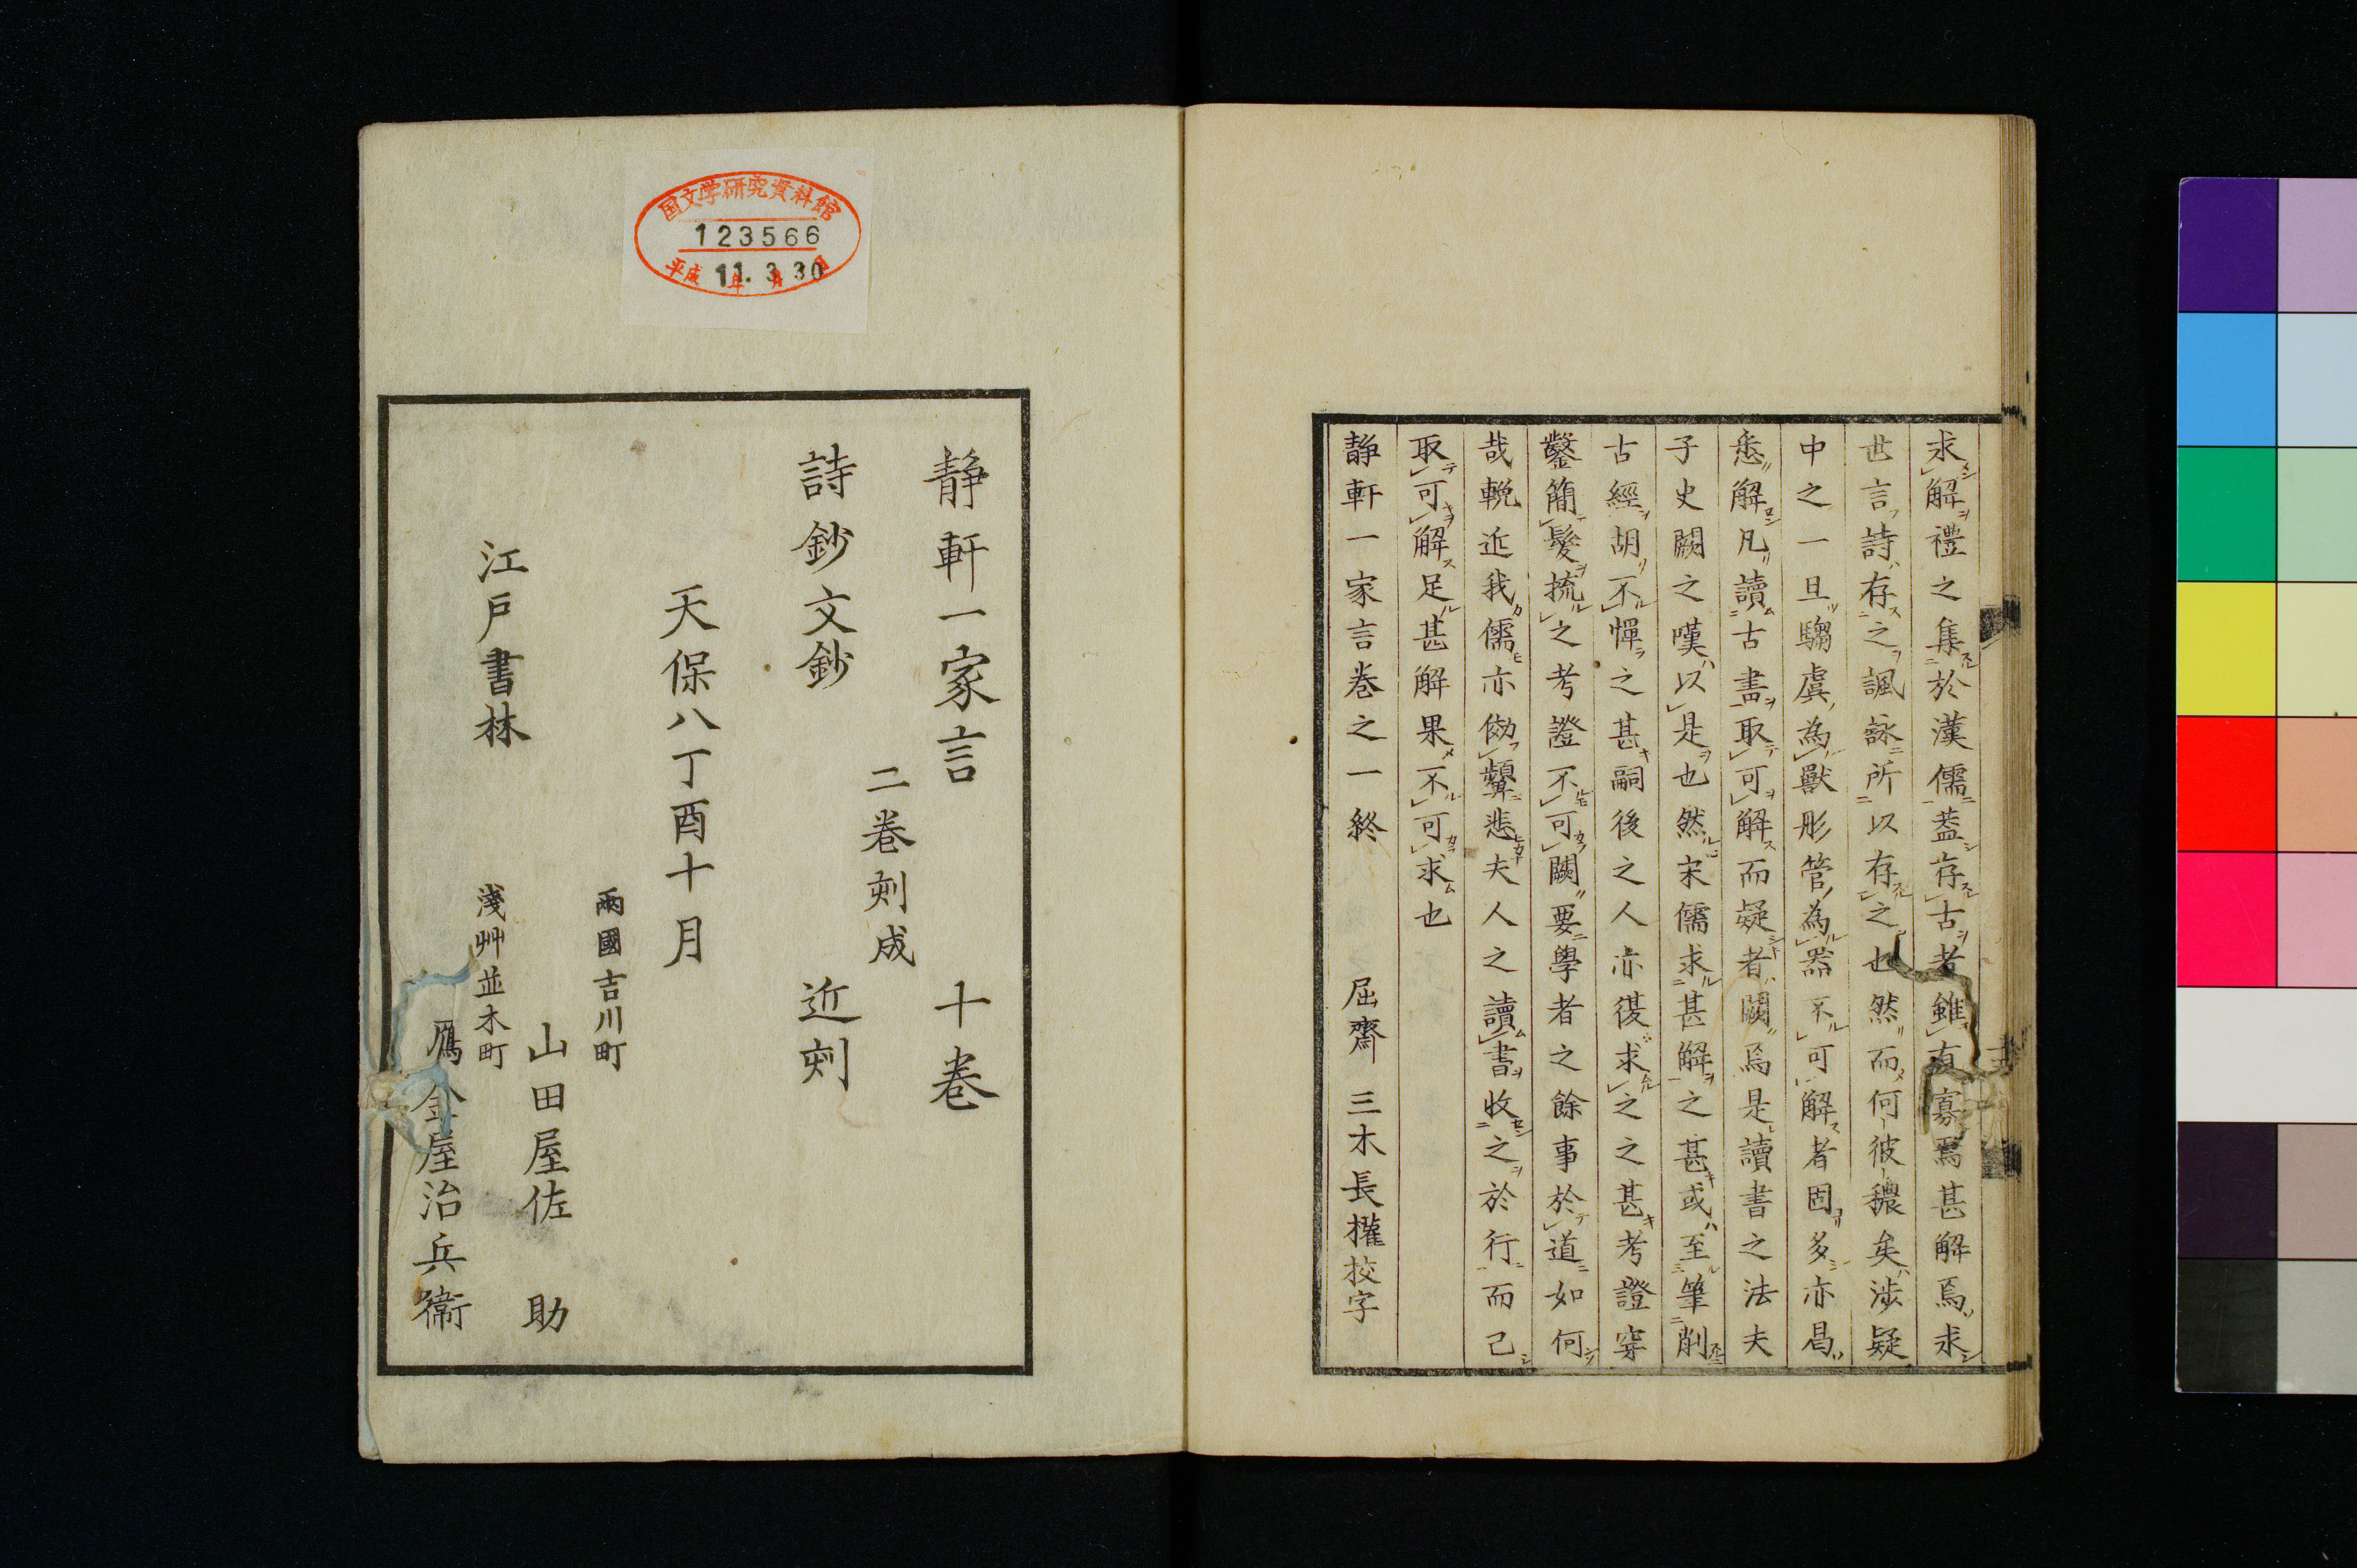 求解禮之集於漢儒蓋存古者雖有寡焉甚解焉求
世言詩存之諷詠所以存之也然而何彼穠矣涉疑
中之一旦騶虞為獸彤管為器不可解者固多亦曷
悉解凡讀古書取可解而疑者闕焉是讀書之法夫
子史闕之嘆以是也然宋儒求甚解之甚或至筆削
古經胡不憚之甚嗣後之人亦復求之之甚考證穿
鑿簡髮梳之考證不可闕要學者之餘事於道如何
哉輓近我儒亦傚顰悲夫人之讀書收之於行而已
取可解足甚解果不可求也
静軒一家言卷之一終 屈齋 三木長權校字
静軒一家言 十卷
二卷刻成
詩鈔文鈔 近刻
天保八丁酉十月
江戸書林
兩國吉川町
山田屋佐助
淺艸並木町
鴈金屋治兵衞
国文学研究資料館
123566
平成 11年 3月 30日